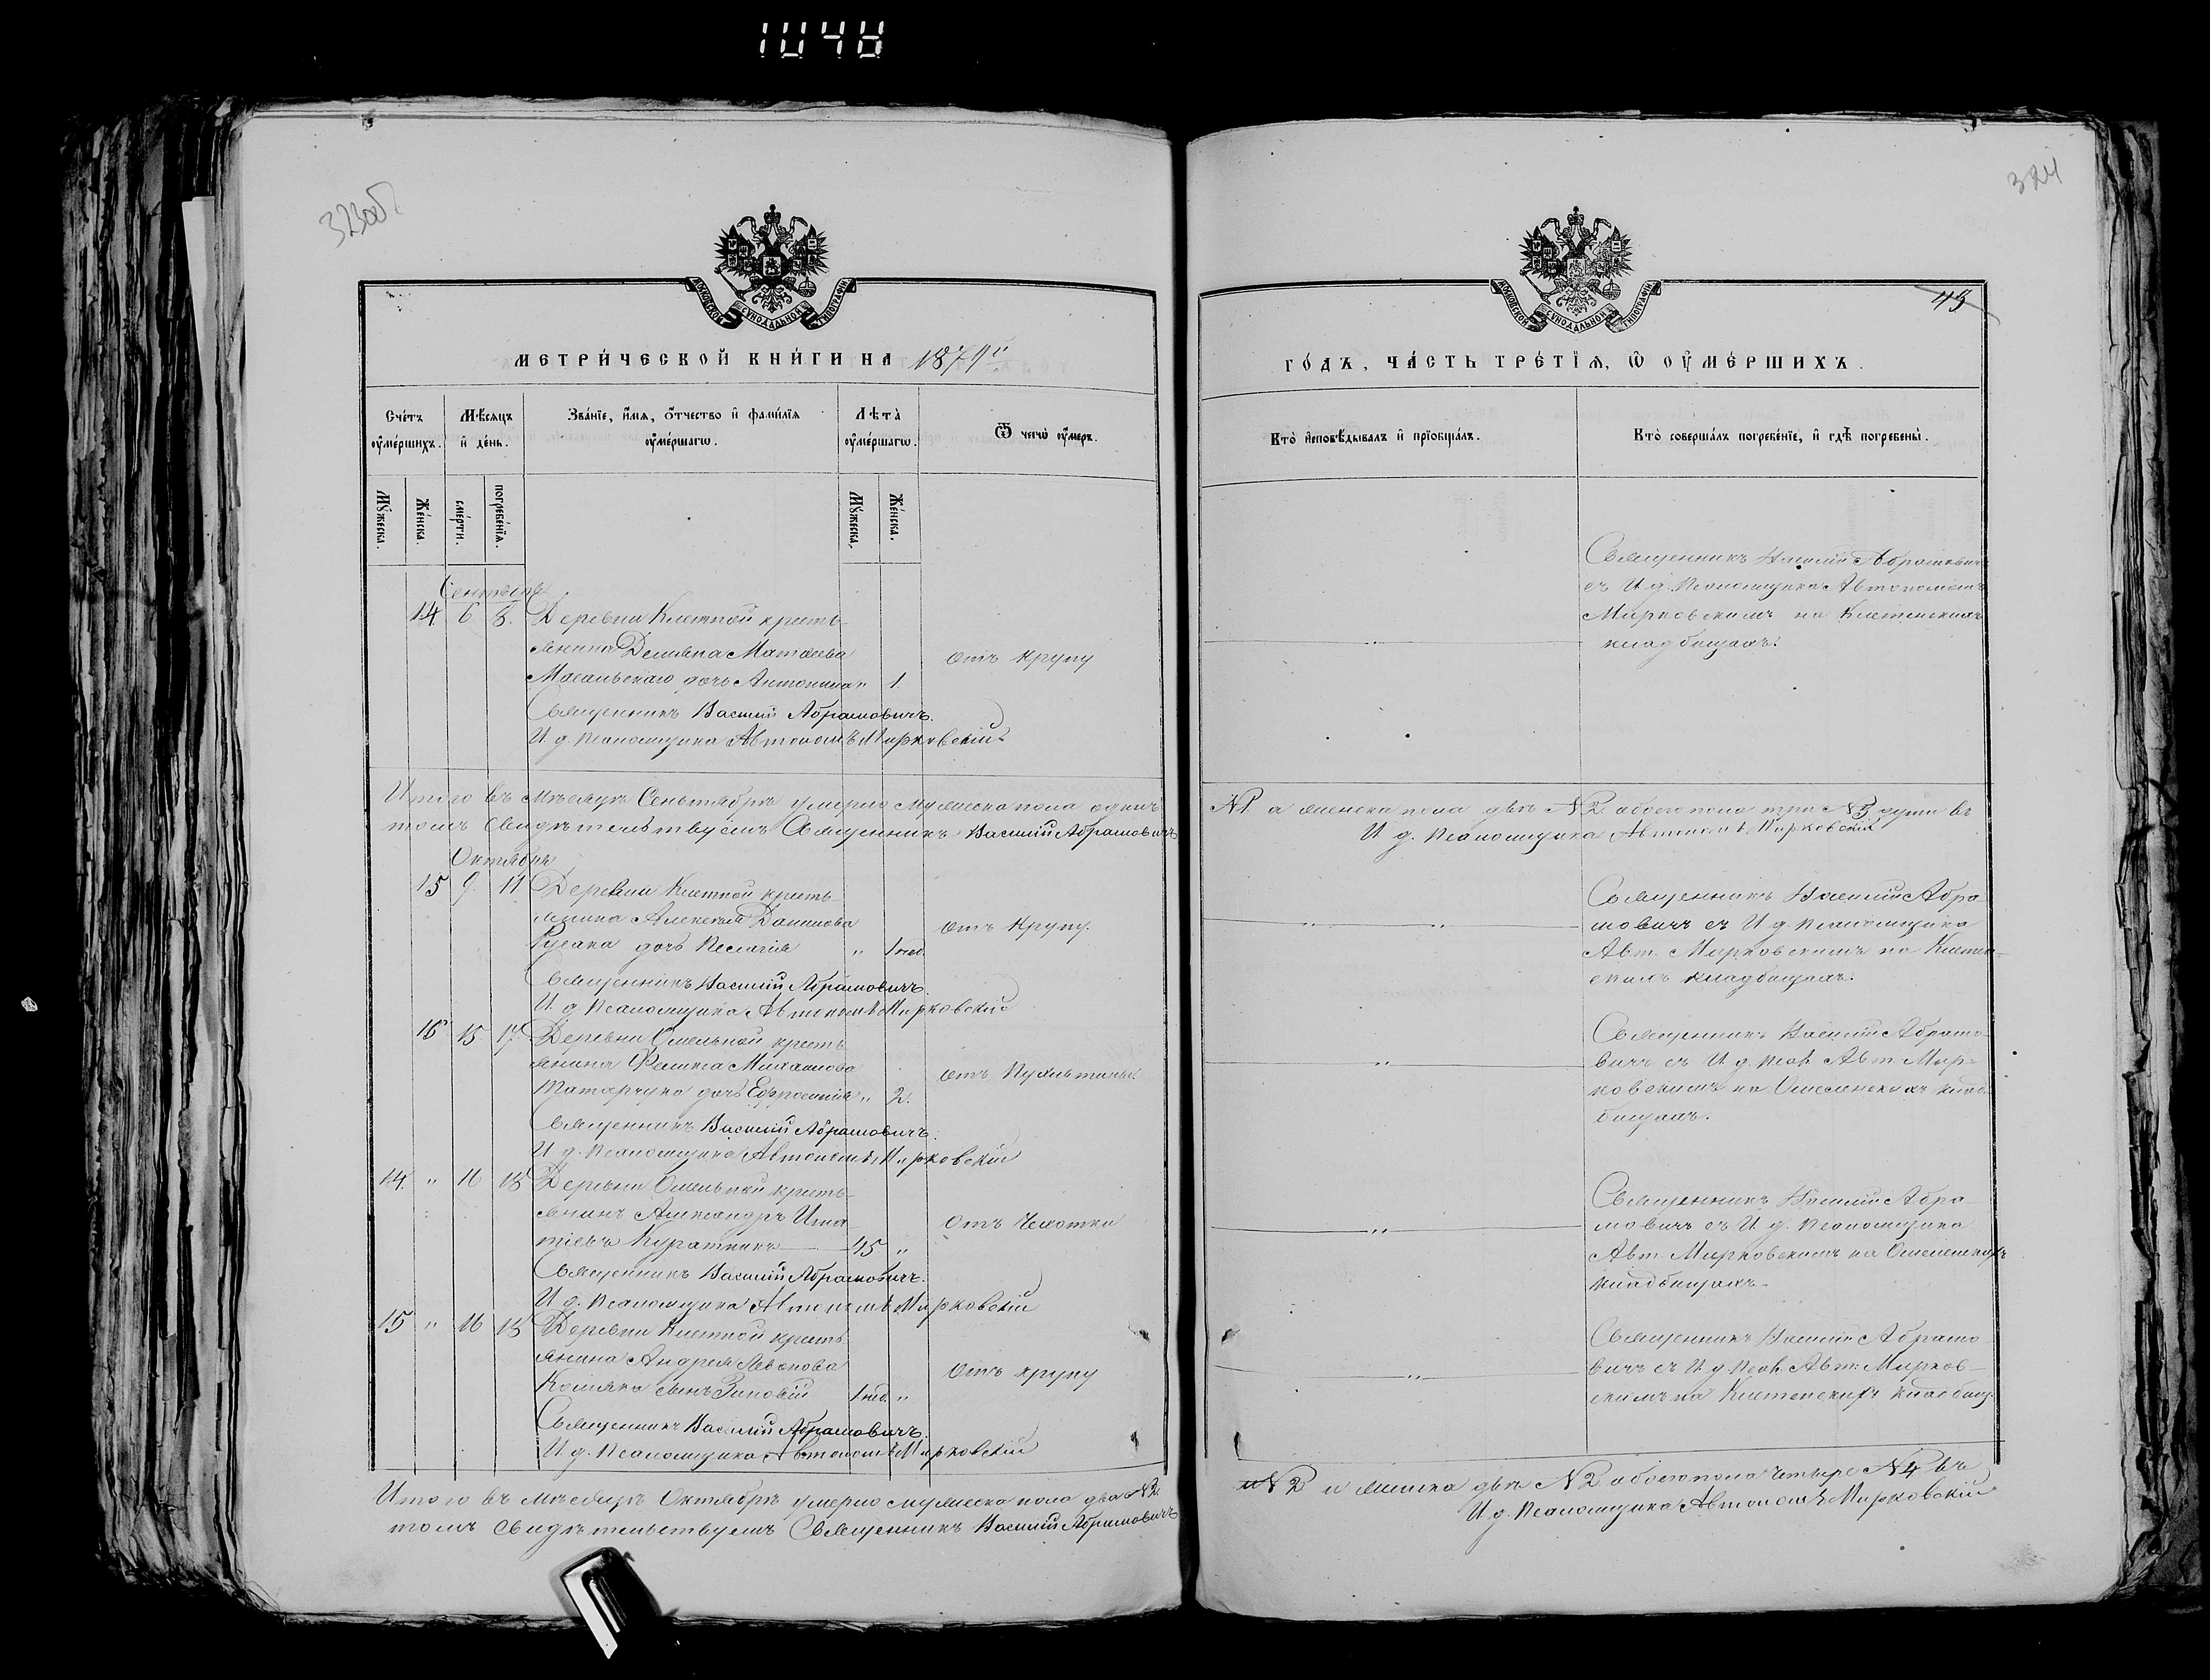 1048
323об
324
МОСКОВСКОЙ СѴНОДАЛЬНОЙ ТИПОГРАФІИ
МОСКОВСКОЙ СѴНОДАЛЬНОЙ ТИПОГРАФІИ
45
МЕТРИ́ЧЕСКОЙ КНИ́ГИ НА 1879й
ГО́ДЪ, ЧА́СТЬ ТРЕ́ТІЯ, Ѡ ОУ҆МЕ́РШИХЪ.
Сче́тъ оу҆ме́ршихъ.
Мѣ́сяцъ и҆ де́нь.
Зва́нїе, и҆́мя, ѻ҆́тчество и҆ фами́лїя оу҆ме́ршагѡ.
Лѣ́та оу҆ме́ршагѡ.
Ѿ чегѡ̀ оу҆́меръ.
Кто̀ и҆сповѣ́дывалъ и҆ прїобща́лъ.
Кто̀ соверша́лъ погребе́нїе, и҆ гдѣ̀ погребены̀.
Мꙋ́жеска.
Же́нска.
сме́рти.
погребе́нїя.
Мꙋ́жеска.
Же́нска.
Сентябрь
14. 6 8. Деревни Клетной кресть-
янина Демьяна Матвеева
отъ крупу
Масальскаго дочь Антонина " 1.
Священникъ Василій Абрамовичъ.
И. д. Псаломщика Автономъ Мирковскій
Священникъ Василій Абрамовичъ
съ И. д. Псаломщика Автономомъ
Мирковскимъ на Клетенскихъ
кладбищахъ.
Итого въ мѣсяцѣ Сентябрѣ умерло мужеска пола одинъ
№1. а женска пола двѣ №2 обоего пола три №3 души въ
томъ свидѣтельствуемъ Священникъ Василій Абрамовичъ
И. д. Псаломщика Автономъ Мирковскій
Октябрь
15 9. 11 Деревни Клетной кресть-
янина Алексея Данилова
отъ Крупу.
Русака дочь Пелагія " 1 нед.
Священникъ Василій Абрамовичъ.
И. д. Псаломщика Автономъ Мирковскій
Священникъ Василій Абра-
мовичъ съ И. д. Псаломщика
Авт. Мирковскимъ на Клетен-
скихъ кладбищахъ.
16 15 17. Деревни Омельной кресть-
янина Михаилова
отъ
Татарчука дочь Ефросинія " 2.
Священникъ Василій Абрамовичъ.
И. д. Псаломщика Автономъ Мирковскій
Священникъ Василій Абрамо-
вичъ съ И. д. Псал. Авт. Мир-
ковскимъ на Омеленскихъ клад-
бищахъ.
14. " 16 18 Деревни Омельной кресть-
янинъ Александръ Игна-
отъ Чахотки
тіевъ Куратникъ 45 "
Священникъ Василій Абрамовичъ.
И. д. Псаломщика Автономъ Мирковскій
Священникъ Василій Абра-
мовичъ съ И. д. Псаломщика
Авт. Мирковскимъ на Омеленскихъ
кладбищахъ.
15 " 16 18 Деревни Клетной кресть-
янина Андрея Левонова
отъ крупу
Комяка сынъ Зиновій 1 нед. "
Священникъ Василій Абрамовичъ.
И. д. Псаломщика Автономъ Мирковскій
Священникъ Василій Абрамо-
вичъ съ И. д. Псал. Авт. Мирков-
скимъ на Клетенскихъ кладбищ.
Итого въ мѣсяцѣ Октябрѣ умерло мужеска пола два №2
№2 и женска двѣ №2 обоего пола четыре №4 въ
томъ свидѣтельствуемъ Священникъ Василій Абрамовичъ
И. д. Псаломщика Автономъ Мирковскій